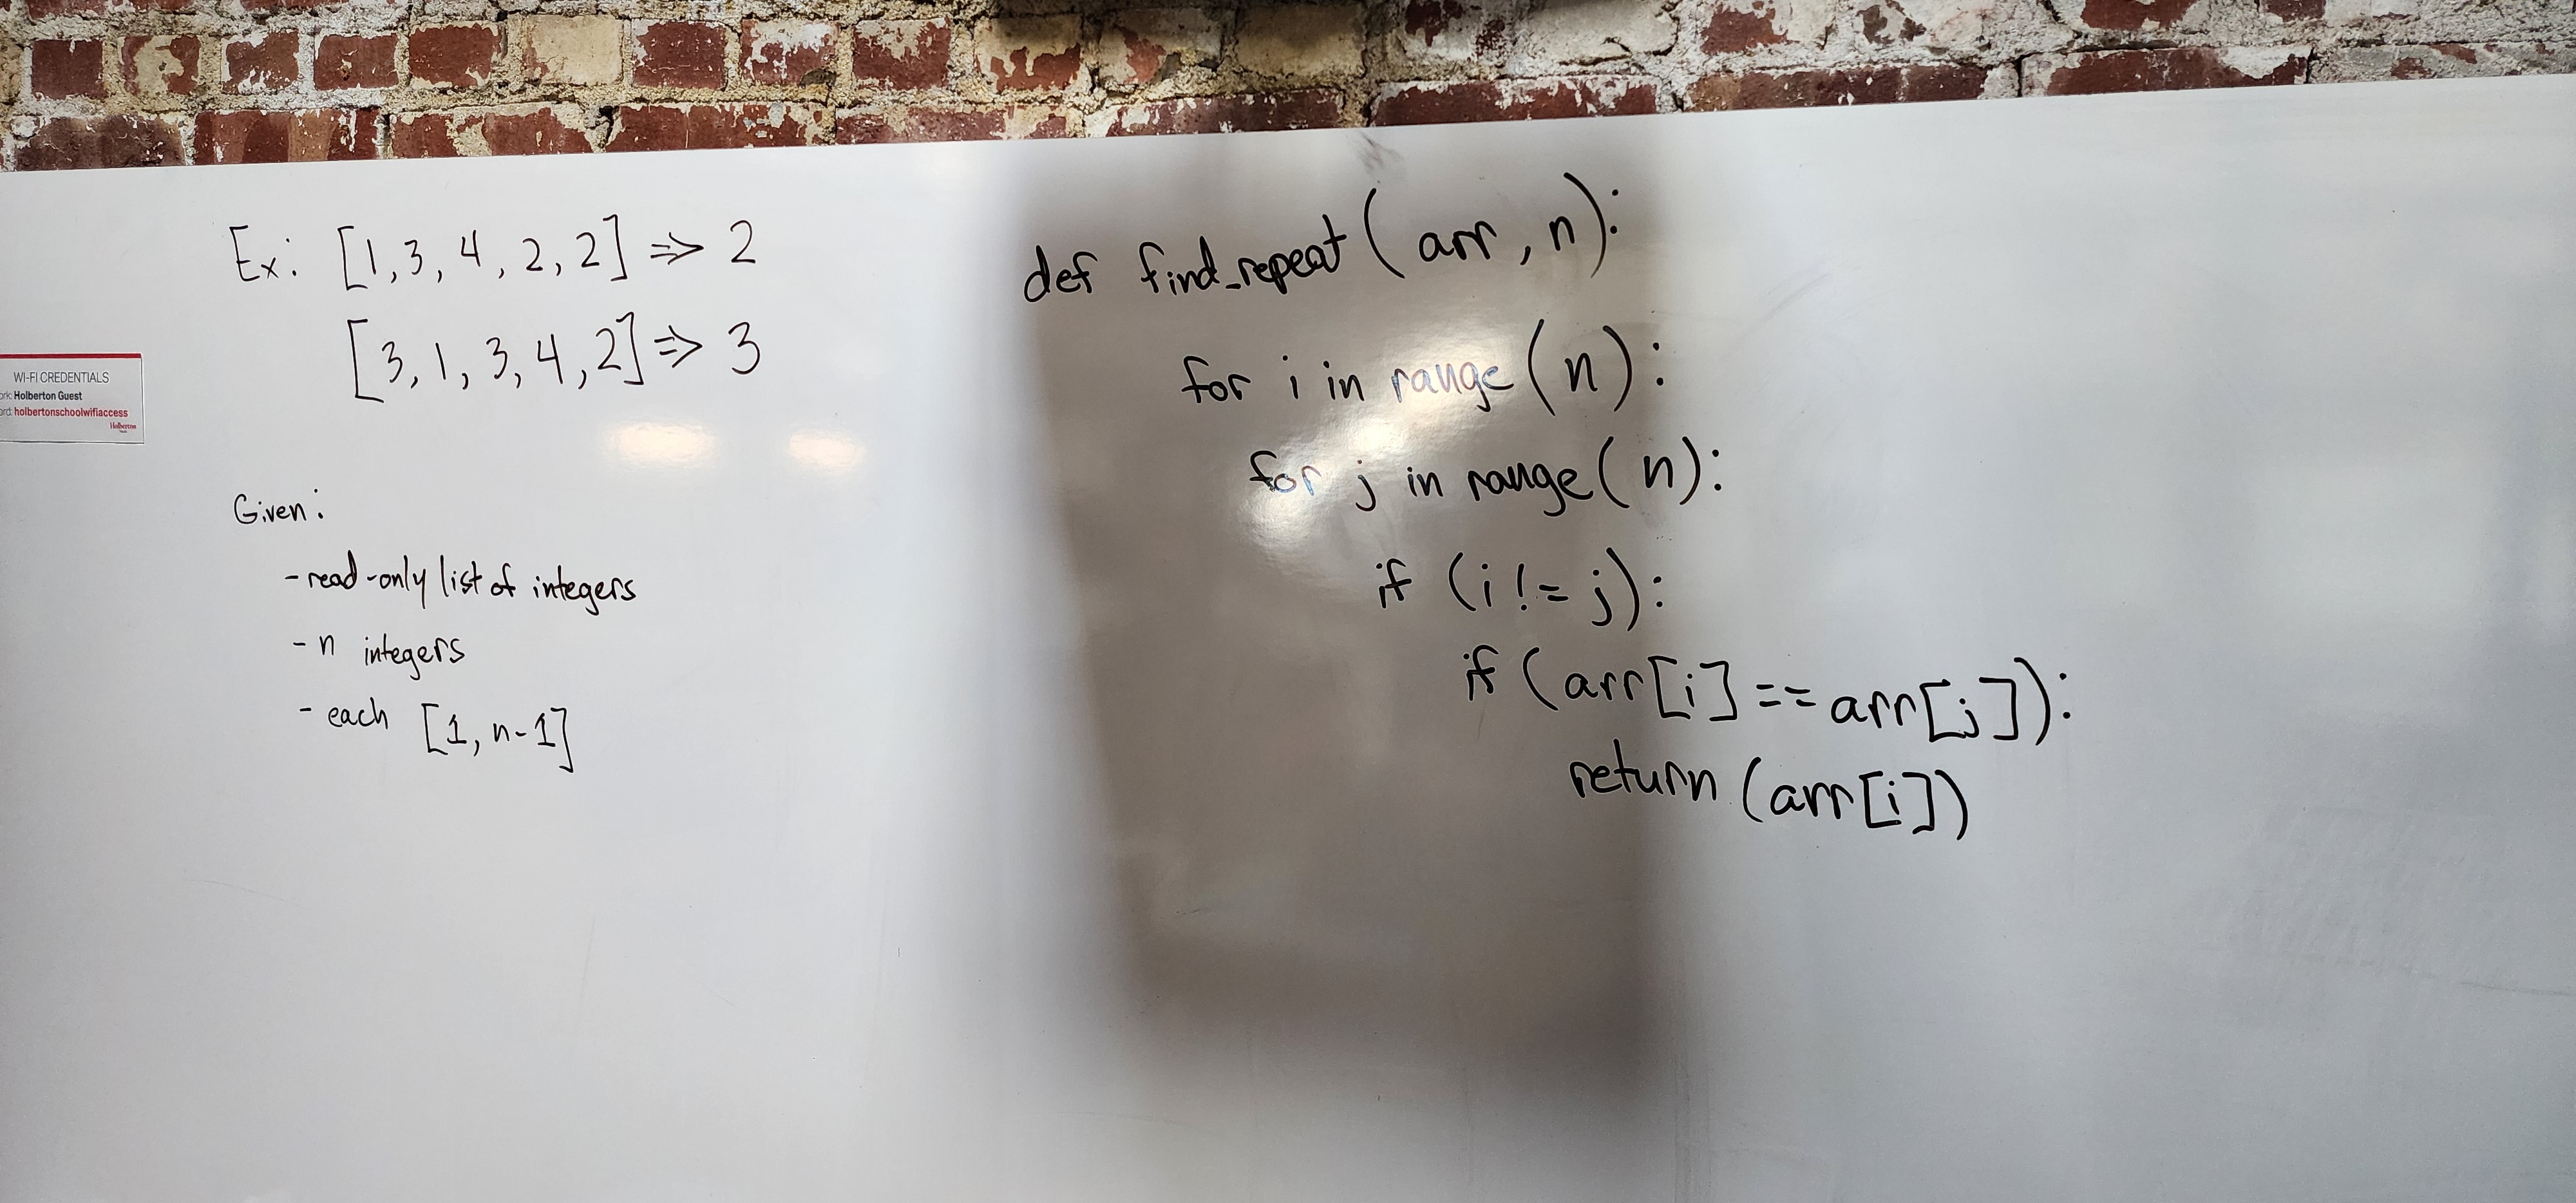 Ex: [1,3,4,2,2] => 2
[3,1,3,4,2] => 3
WI-FI CREDENTIALS
Holberton Guest
holbertonschoolwifiaccess
Holberton
Given:
- read-only list of integers
- n integers
- each [1, n-1]
def find_repeat(arr, n):
for i in range(n):
for j in range(n):
if (i != j):
if (arr[i] == arr[j]):
return (arr[i])